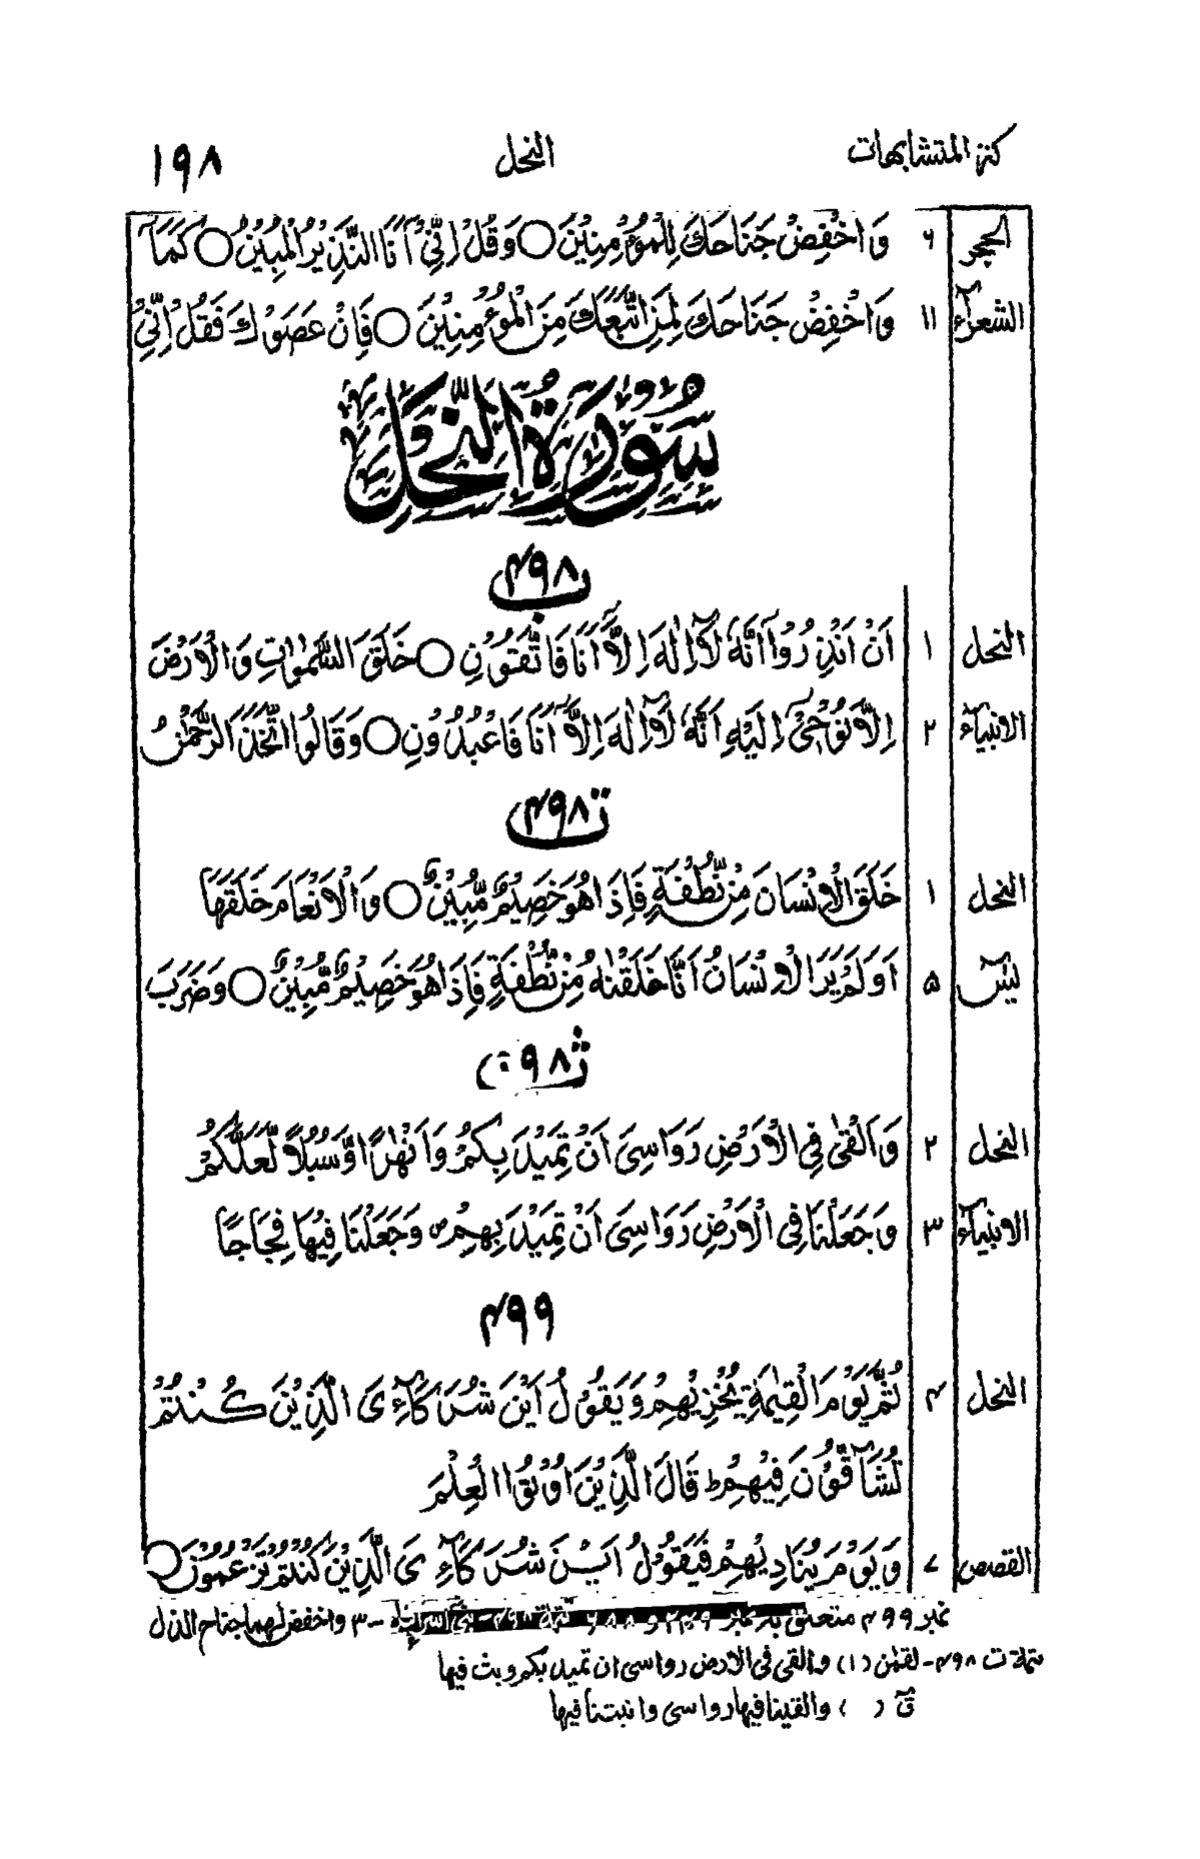 كنز المتشابهات النحل ١٩٨
الحجر ٦ وَاخْفِضْ جَنَاحَكَ لِلْمُؤْمِنِيْنَ ○ وَقُلْ اِنِّيْٓ اَنَا النَّذِيْرُ الْمُبِيْنُ ○ كَمَآ
الشعرآء ١١ وَاخْفِضْ جَنَاحَكَ لِمَنِ اتَّبَعَكَ مِنَ الْمُؤْمِنِيْنَ ○ فَاِنْ عَصَوْكَ فَقُلْ اِنِّيْ
سُوْرَةُ النَّحْلِ
ب ۴۹۸
النحل ١ اَنْ اَنْذِرُوْٓا اَنَّهٗ لَآ اِلٰهَ اِلَّآ اَنَا فَاتَّقُوْنِ ○ خَلَقَ السَّمٰوٰتِ وَالْاَرْضَ
الانبيآء ٢ اِلَّا نُوْحِيْٓ اِلَيْهِ اَنَّهٗ لَآ اِلٰهَ اِلَّآ اَنَا فَاعْبُدُوْنِ ○ وَقَالُوا اتَّخَذَ الرَّحْمٰنُ
ت ۴۹۸
النحل ١ خَلَقَ الْاِنْسَانَ مِنْ نُّطْفَةٍ فَاِذَا هُوَ خَصِيْمٌ مُّبِيْنٌ ○ وَالْاَنْعَامَ خَلَقَهَا
يٰسٓ ۵ اَوَلَمْ يَرَ الْاِنْسَانُ اَنَّا خَلَقْنٰهُ مِنْ نُّطْفَةٍ فَاِذَا هُوَ خَصِيْمٌ مُّبِيْنٌ ○ وَضَرَبَ
ث ۹۸
النحل ٢ وَاَلْقٰى فِي الْاَرْضِ رَوَاسِيَ اَنْ تَمِيْدَ بِكُمْ وَاَنْهٰرًا وَّسُبُلًا لَّعَلَّكُمْ
الانبيآء ٣ وَجَعَلْنَا فِي الْاَرْضِ رَوَاسِيَ اَنْ تَمِيْدَ بِهِمْ ص وَجَعَلْنَا فِيْهَا فِجَاجًا
۴۹۹
النحل ۴ ثُمَّ يَوْمَ الْقِيٰمَةِ يُخْزِيْهِمْ وَيَقُوْلُ اَيْنَ شُرَكَآءِيَ الَّذِيْنَ كُنْتُمْ
تُشَآقُّوْنَ فِيْهِمْ ط قَالَ الَّذِيْنَ اُوْتُوا الْعِلْمَ
القصص ٧ وَيَوْمَ يُنَادِيْهِمْ فَيَقُوْلُ اَيْنَ شُرَكَآءِيَ الَّذِيْنَ كُنْتُمْ تَزْعُمُوْنَ ○
نمبر ۴۹۹ متعلق بہ نمبر ٣ واخفض لهما جناح الذل
تتمة ت ۴۹۸ - لقمٰن (١) والقى فى الارض رواسى ان تميد بكم وبث فيها
قٓ ( ) والقينا فيها رواسى وانبتنا فيها